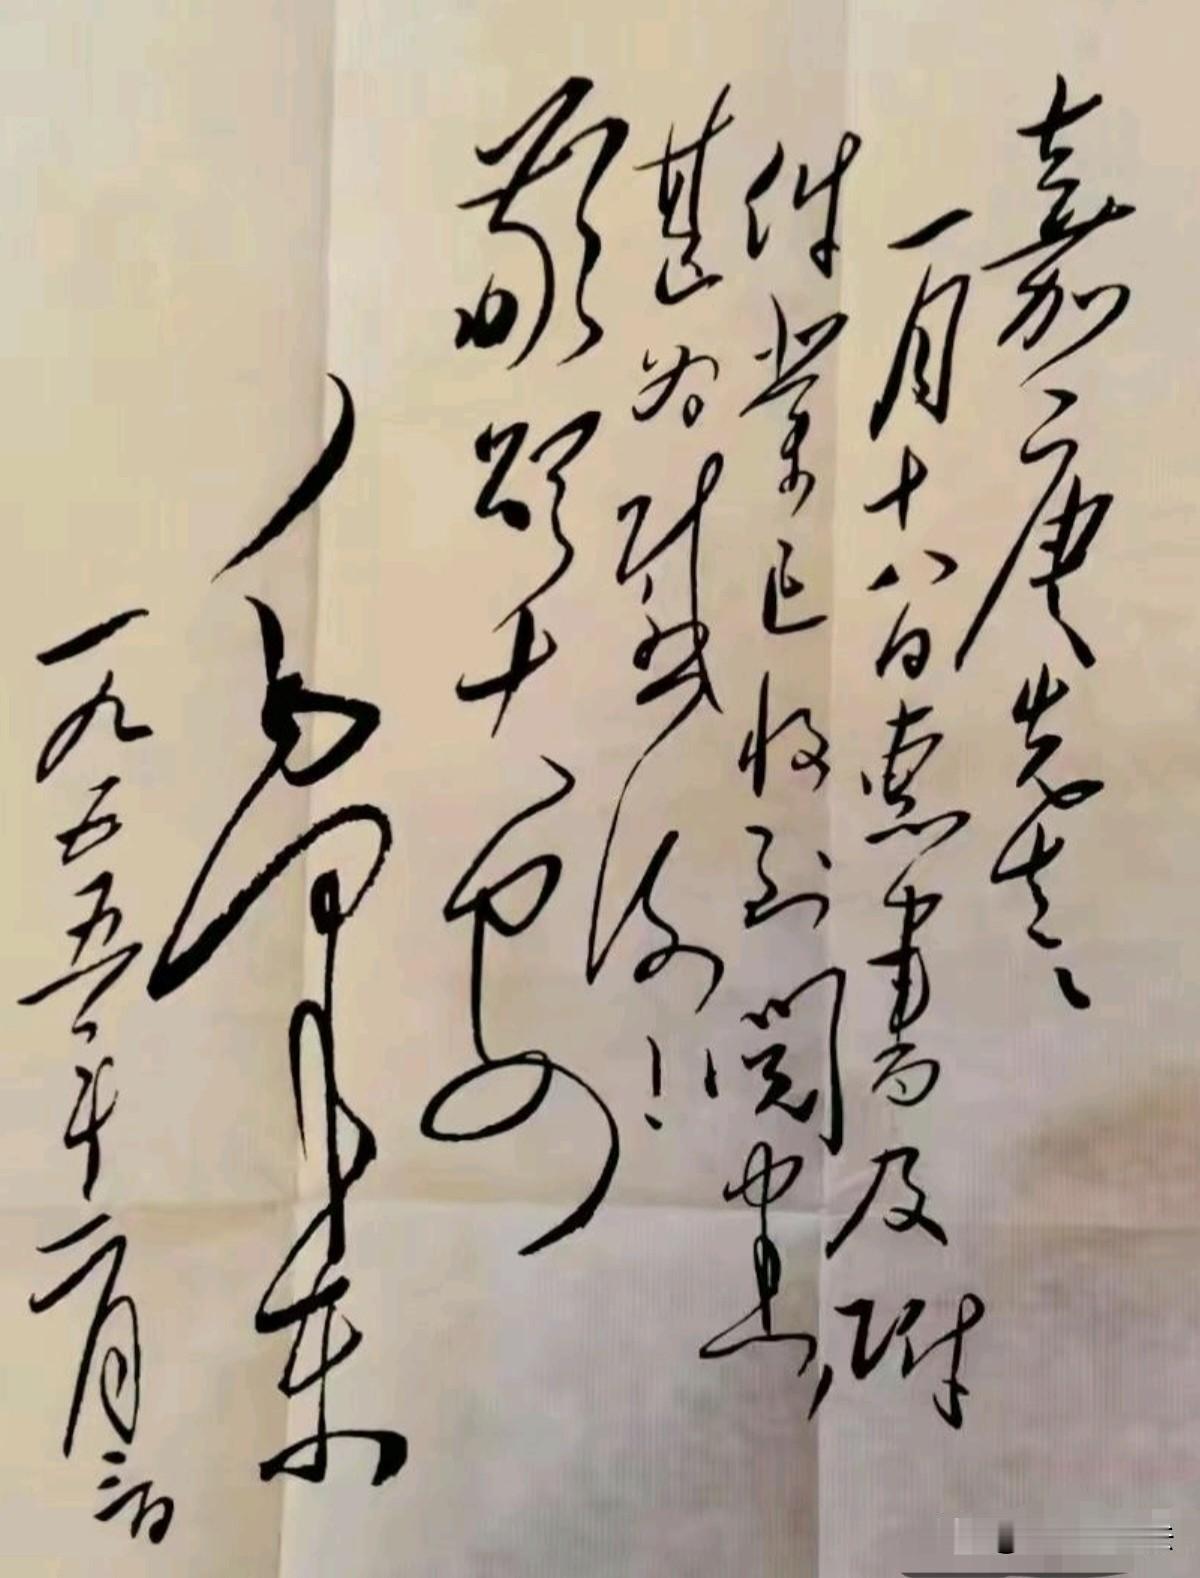 嘉庚先生：
一月十八日惠书及附
件业已收到阅悉，
甚为感谢！
敬颂大安
毛泽东
一九五五年二月三日